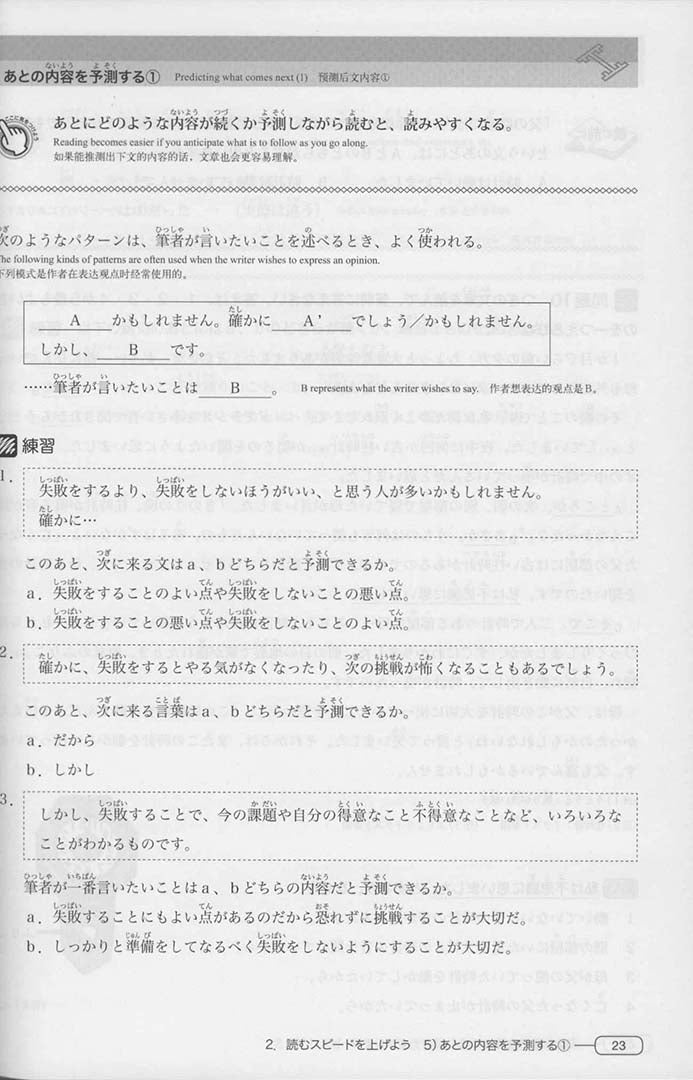 あとの内容を予測する① Predicting what comes next (1) 预测后文内容①
あとにどのような内容が続くか予測しながら読むと、読みやすくなる。
Reading becomes easier if you anticipate what is to follow as you go along.
如果能推测出下文的内容的话，文章也会更容易理解。
次のようなパターンは、筆者が言いたいことを述べるとき、よく使われる。
The following kinds of patterns are often used when the writer wishes to express an opinion.
下列模式是作者在表达观点时经常使用的。
A かもしれません。確かに A' でしょう／かもしれません。
しかし、 B です。
……筆者が言いたいことは B 。 B represents what the writer wishes to say. 作者想表达的观点是B。
練習
1．
失敗をするより、失敗をしないほうがいい、と思う人が多いかもしれません。
確かに…
このあと、次に来る文はａ、ｂどちらだと予測できるか。
ａ．失敗をすることのよい点や失敗をしないことの悪い点。
ｂ．失敗をすることの悪い点や失敗をしないことのよい点。
2．
確かに、失敗をするとやる気がなくなったり、次の挑戦が怖くなることもあるでしょう。
このあと、次に来る言葉はａ、ｂどちらだと予測できるか。
ａ．だから
ｂ．しかし
3．
しかし、失敗することで、今の課題や自分の得意なこと不得意なことなど、いろいろな
ことがわかるものです。
筆者が一番言いたいことはａ、ｂどちらの内容だと予測できるか。
ａ．失敗することにもよい点があるのだから恐れずに挑戦することが大切だ。
ｂ．しっかりと準備をしてなるべく失敗をしないようにすることが大切だ。
2．読むスピードを上げよう 5）あとの内容を予測する① 23